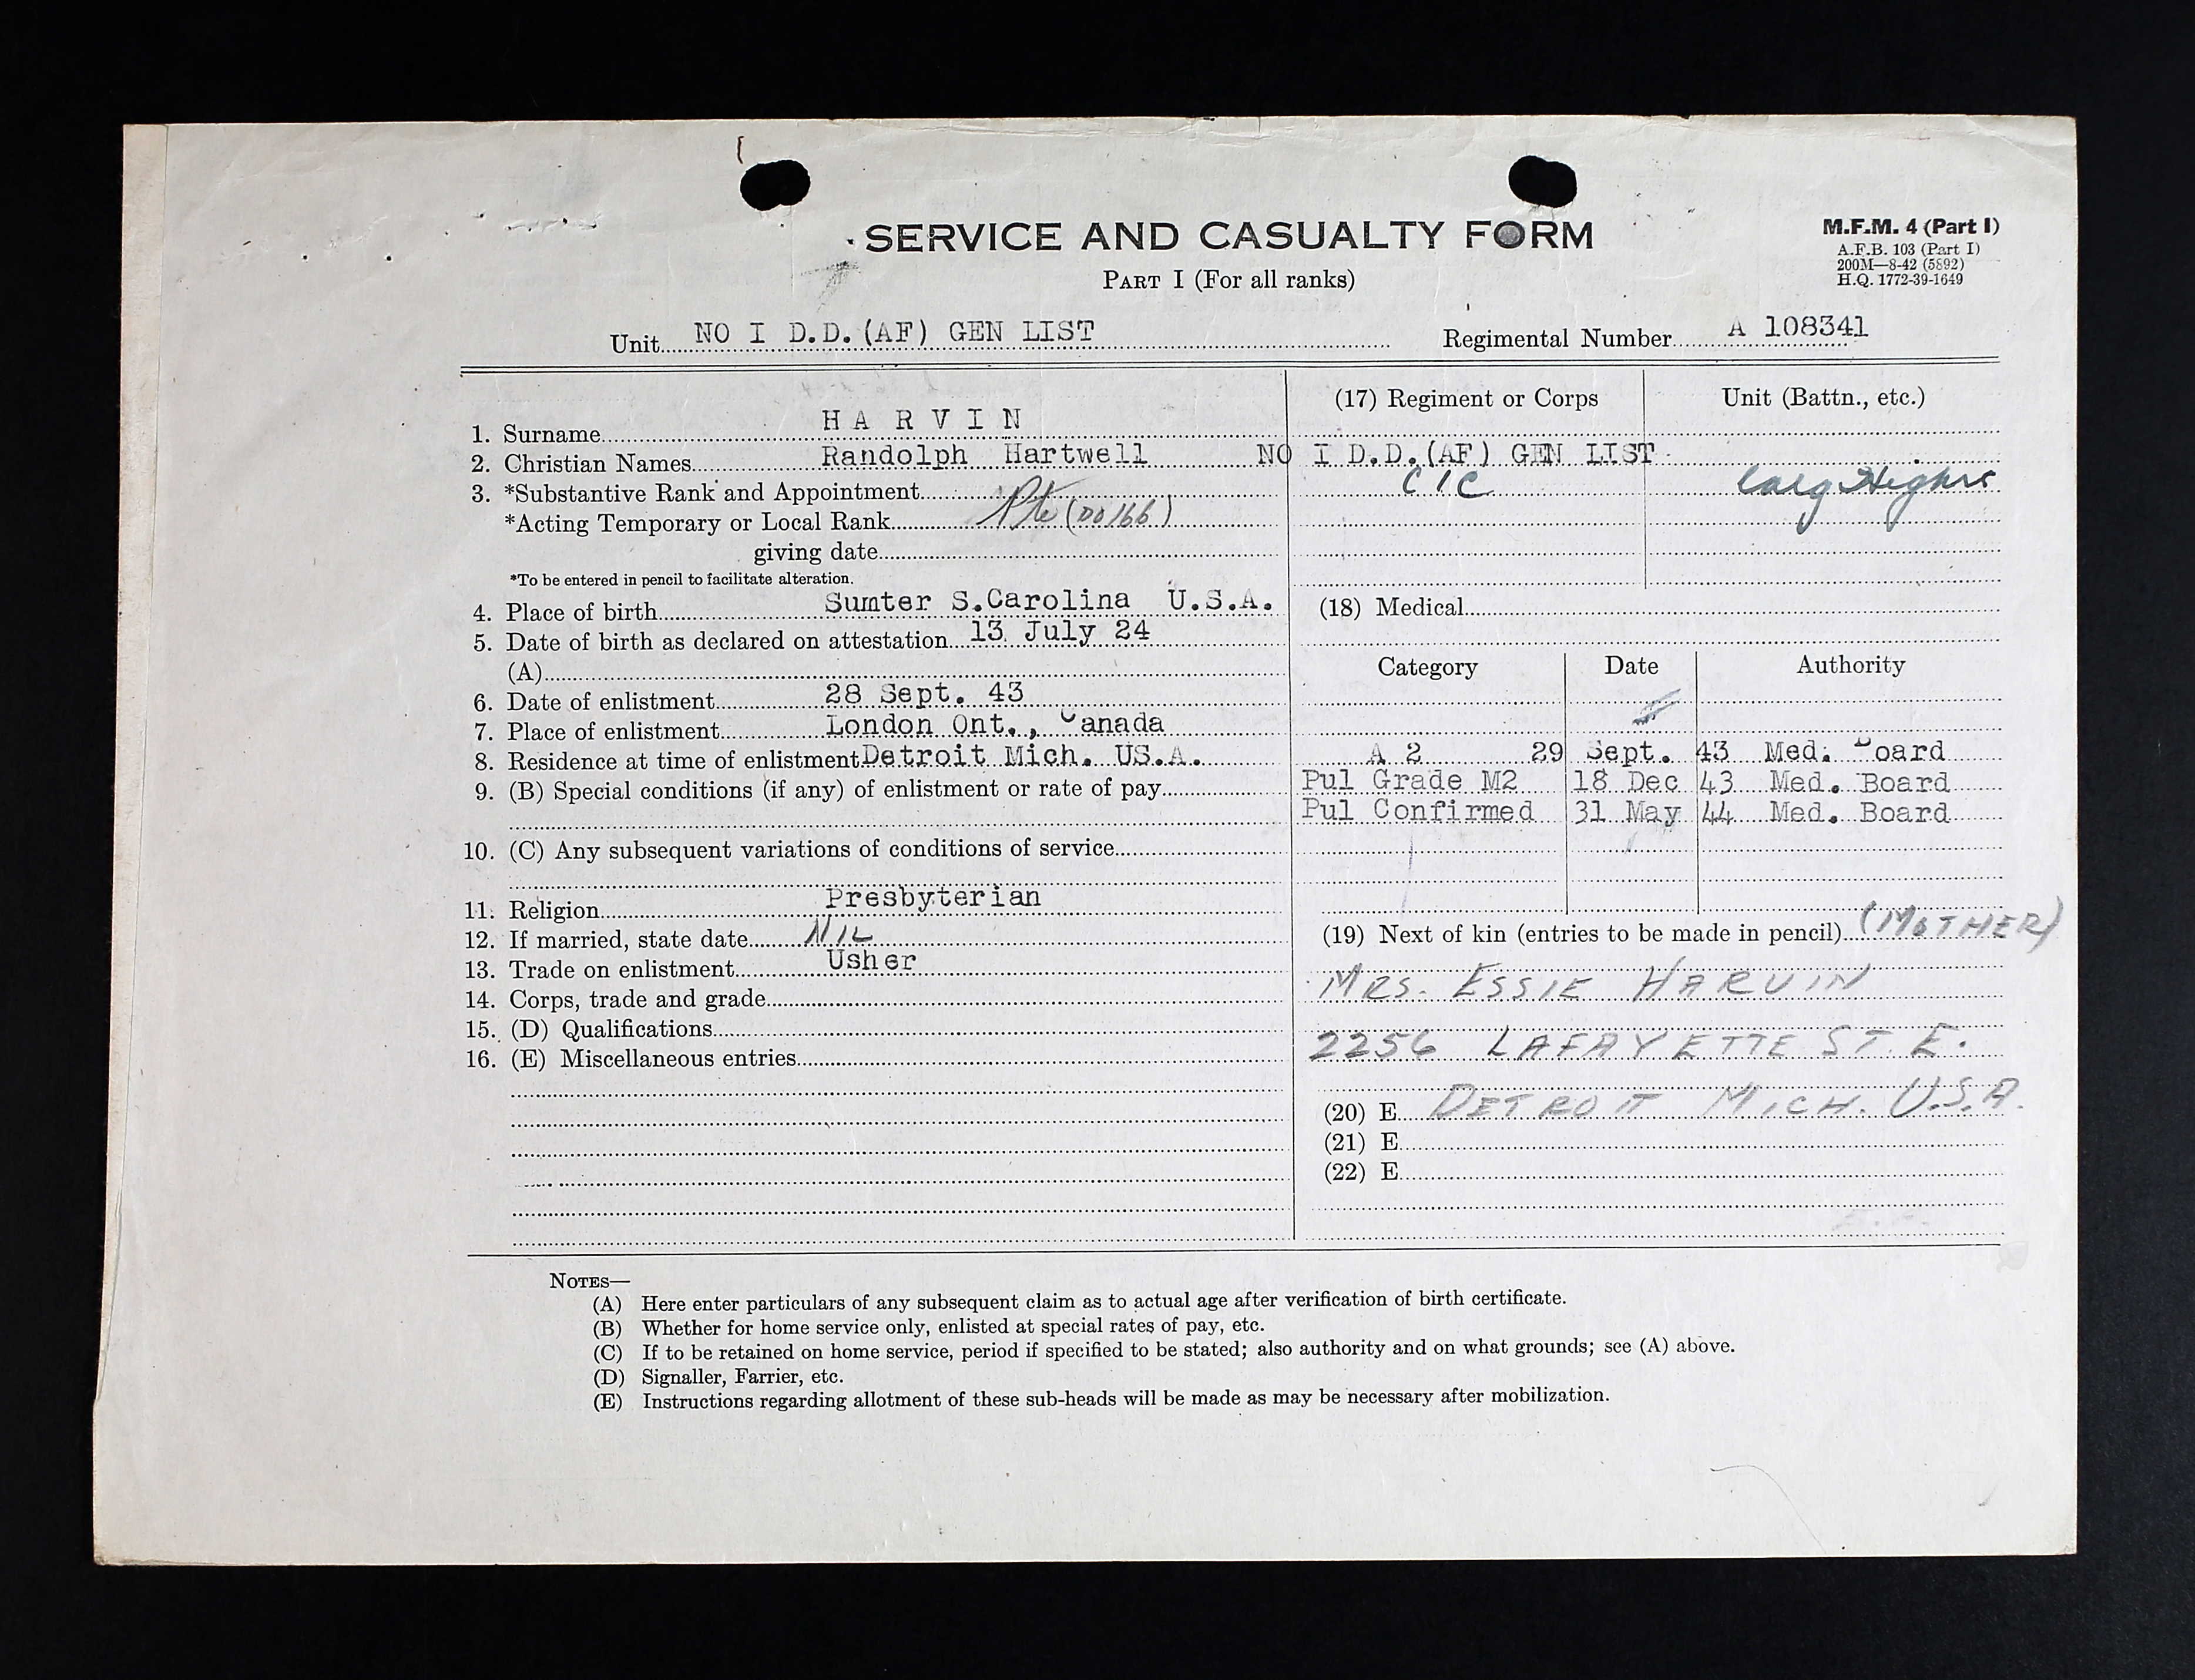 SERVICE AND CASUALTY FORM
PART I (For all ranks)
M.F.M. 4 (Part I)
A.F.B. 103 (Part I)
200M—8-42 (5892)
H.Q. 1772-39-1649
Unit NO I D.D.(AF) GEN LIST
Regimental Number A 108341
1. Surname H A R V I N
2. Christian Names Randolph Hartwell
3. *Substantive Rank and Appointment
*Acting Temporary or Local Rank Pte (DO 166)
giving date
*To be entered in pencil to facilitate alteration.
4. Place of birth Sumter S.Carolina U.S.A.
5. Date of birth as declared on attestation 13 July 24
(A)
6. Date of enlistment 28 Sept. 43
7. Place of enlistment London Ont., Canada
8. Residence at time of enlistment Detroit Mich. US.A.
9. (B) Special conditions (if any) of enlistment or rate of pay
10. (C) Any subsequent variations of conditions of service
11. Religion Presbyterian
12. If married, state date NIL
13. Trade on enlistment Usher
14. Corps, trade and grade
15. (D) Qualifications
16. (E) Miscellaneous entries
(17) Regiment or Corps Unit (Battn., etc.)
NO I D.D.(AF) GEN LIST
CIC Calg Highrs
(18) Medical
Category Date Authority
A 2 29 Sept. 43 Med. Board
Pul Grade M2 18 Dec 43 Med. Board
Pul Confirmed 31 May 44 Med. Board
(19) Next of kin (entries to be made in pencil) (MOTHER)
MRS. ESSIE HARVIN
2256 LAFAYETTE ST. E.
(20) E DETROIT MICH. U.S.A.
(21) E
(22) E
NOTES—
(A) Here enter particulars of any subsequent claim as to actual age after verification of birth certificate.
(B) Whether for home service only, enlisted at special rates of pay, etc.
(C) If to be retained on home service, period if specified to be stated; also authority and on what grounds; see (A) above.
(D) Signaller, Farrier, etc.
(E) Instructions regarding allotment of these sub-heads will be made as may be necessary after mobilization.